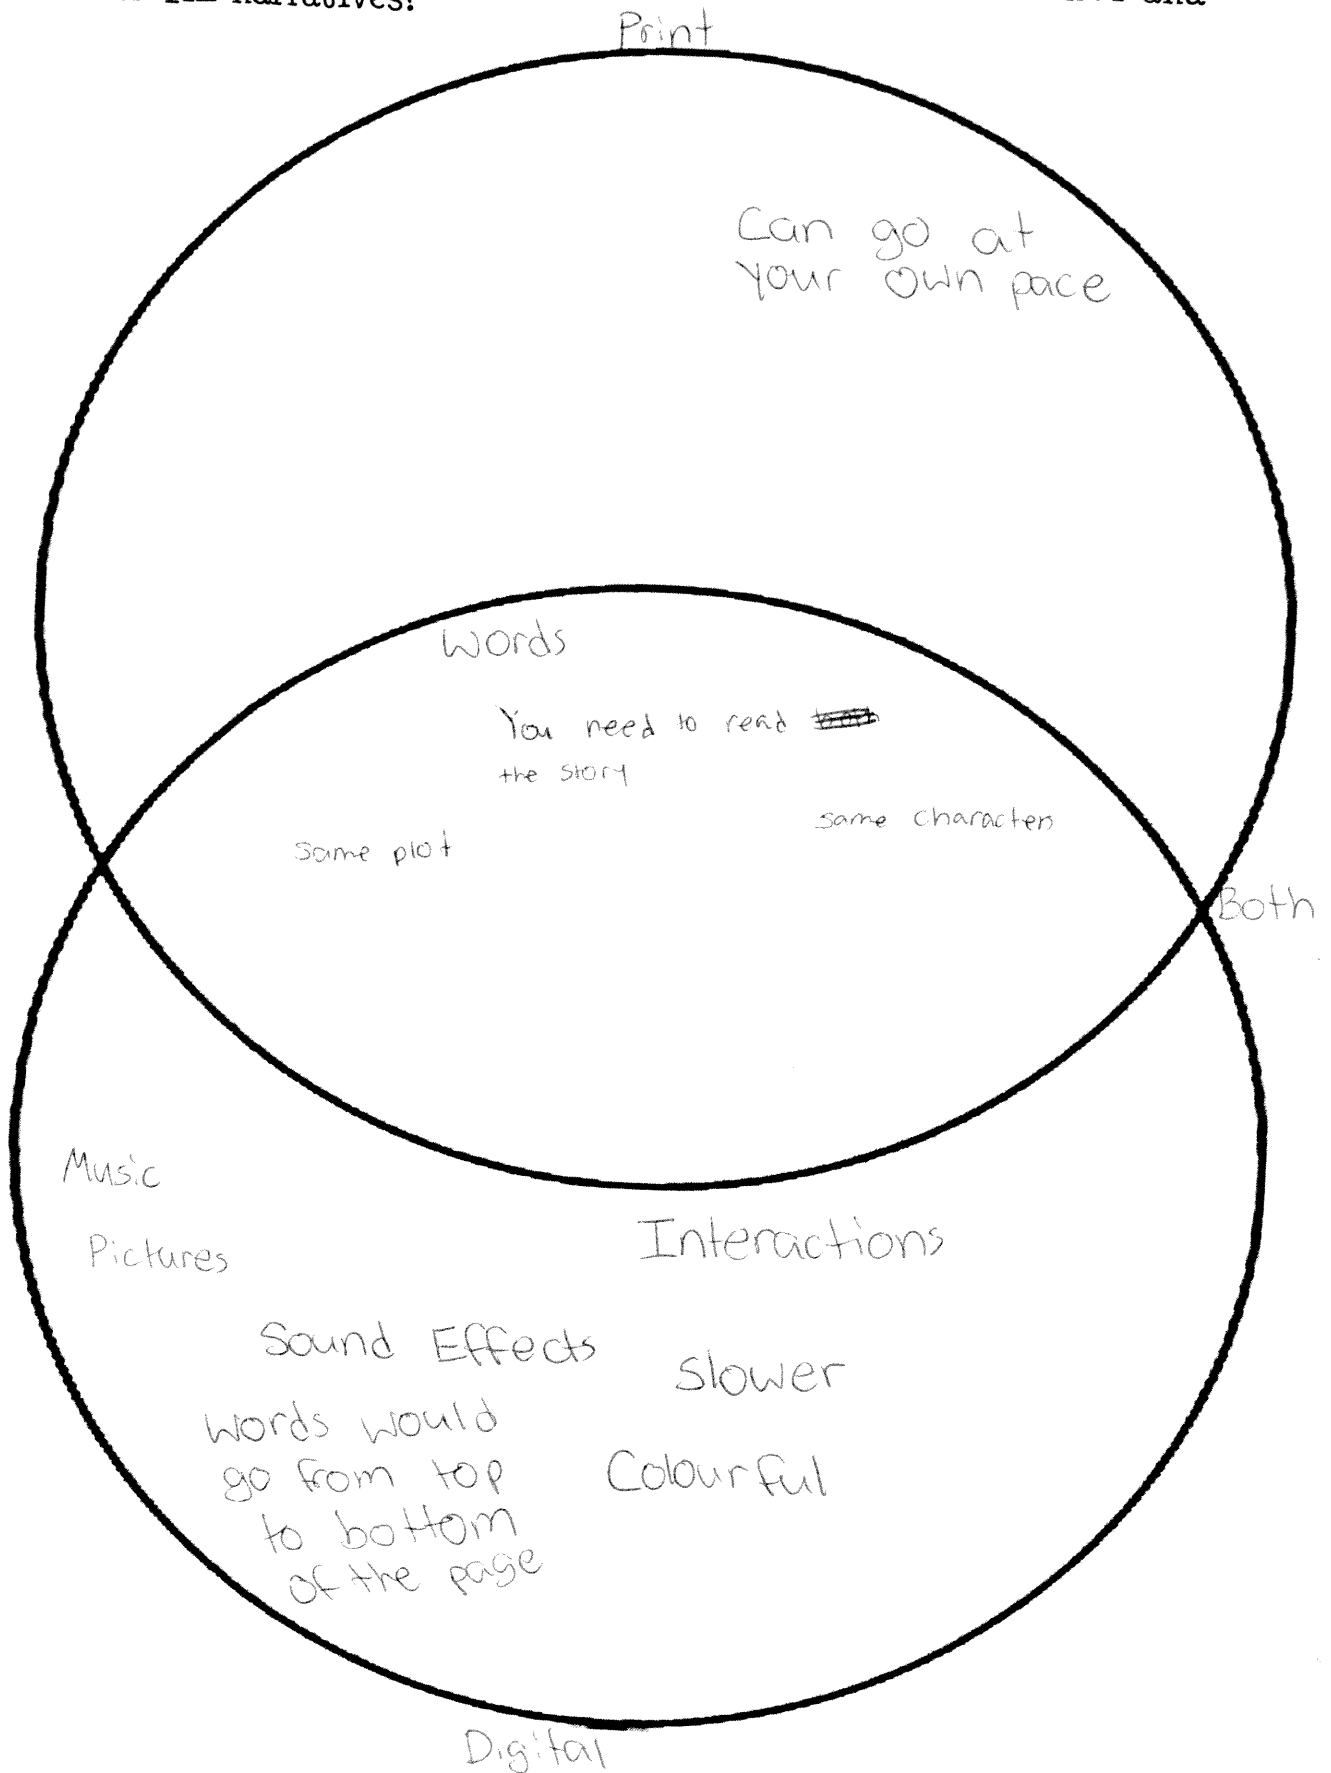 narratives.
and
Print
Can go at
your own pace
Words
You need to read
the story
same characters
same plot
Both
Music
Interactions
Pictures
Sound Effects
Slower
words would
go from top
to bottom
of the page
Colourful
Digital